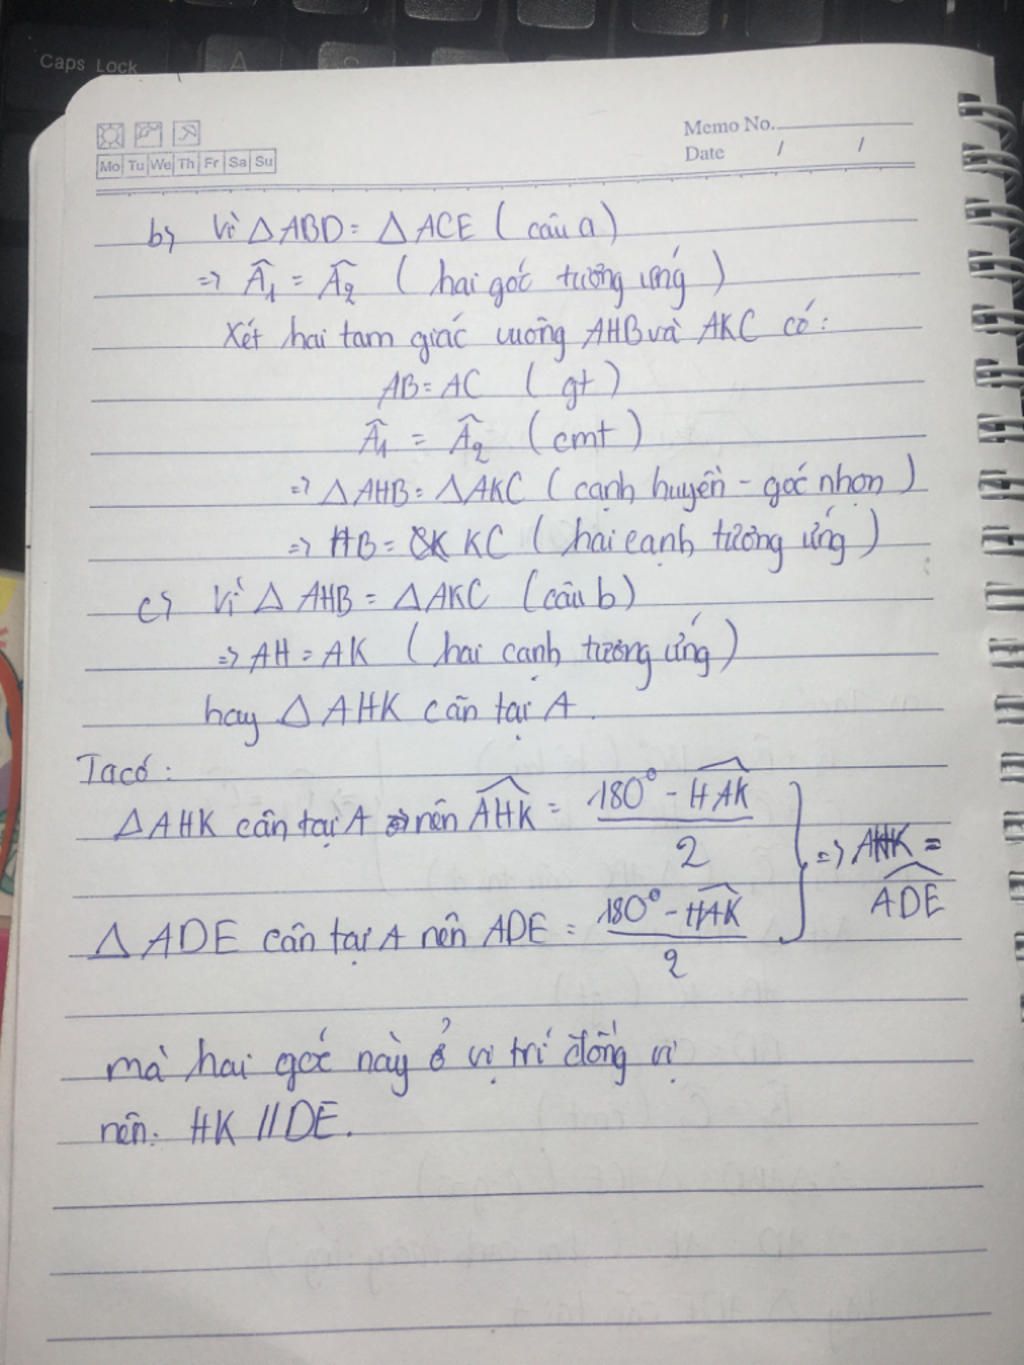 Caps Lock
A
Memo No.
Mo Tu We Th Fr Sa Su
Date / /
b, Vì △ABD = △ACE (câu a)
=> Â₁ = Â₂ (hai góc tương ứng)
Xét hai tam giác vuông AHB và AKC có:
AB = AC (gt)
Â₁ = Â₂ (cmt)
=> △AHB = △AKC (cạnh huyền - góc nhọn)
=> HB = KC (hai cạnh tương ứng)
c, Vì △ AHB = △AKC (câu b)
=> AH = AK (hai cạnh tương ứng)
hay △ AHK cân tại A.
Ta có:
△AHK cân tại A nên \widehat{AHK} = \frac{180° - \widehat{HAK}}{2} => AHK =
△ ADE cân tại A nên ADE = \frac{180° - \widehat{HAK}}{2} \widehat{ADE}
mà hai góc này ở vị trí đồng vị
nên: HK // DE.